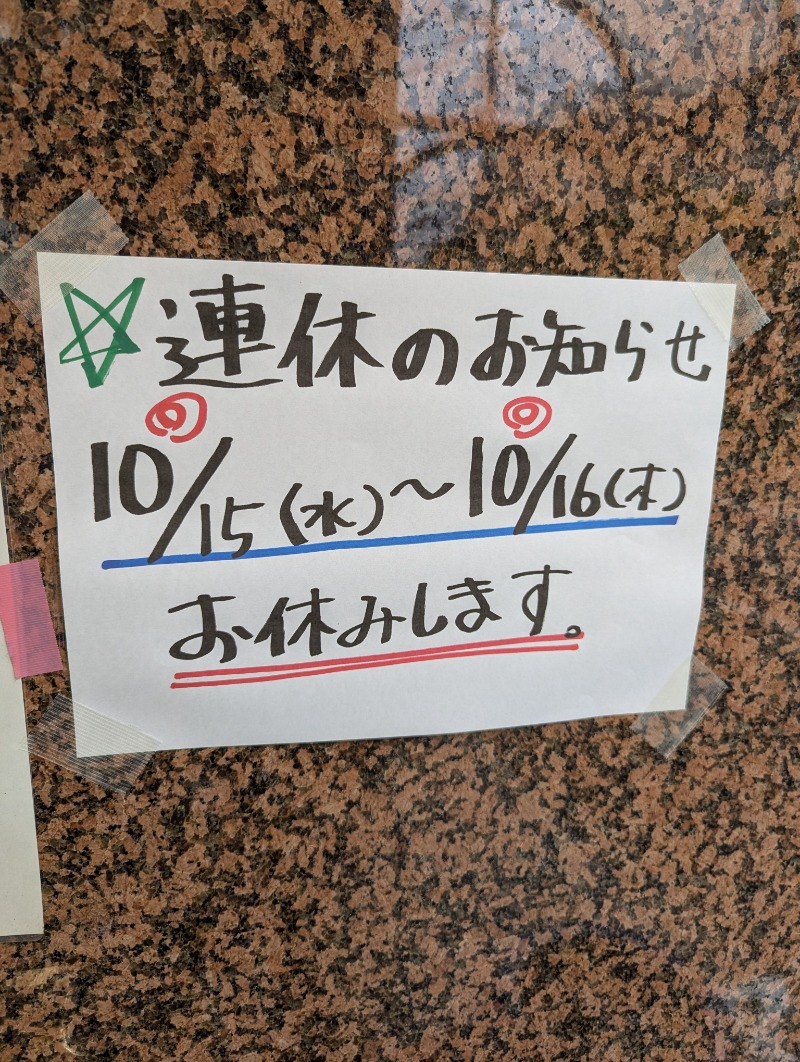 ☆連休のお知らせ
10/15(水)〜10/16(木)
お休みします。